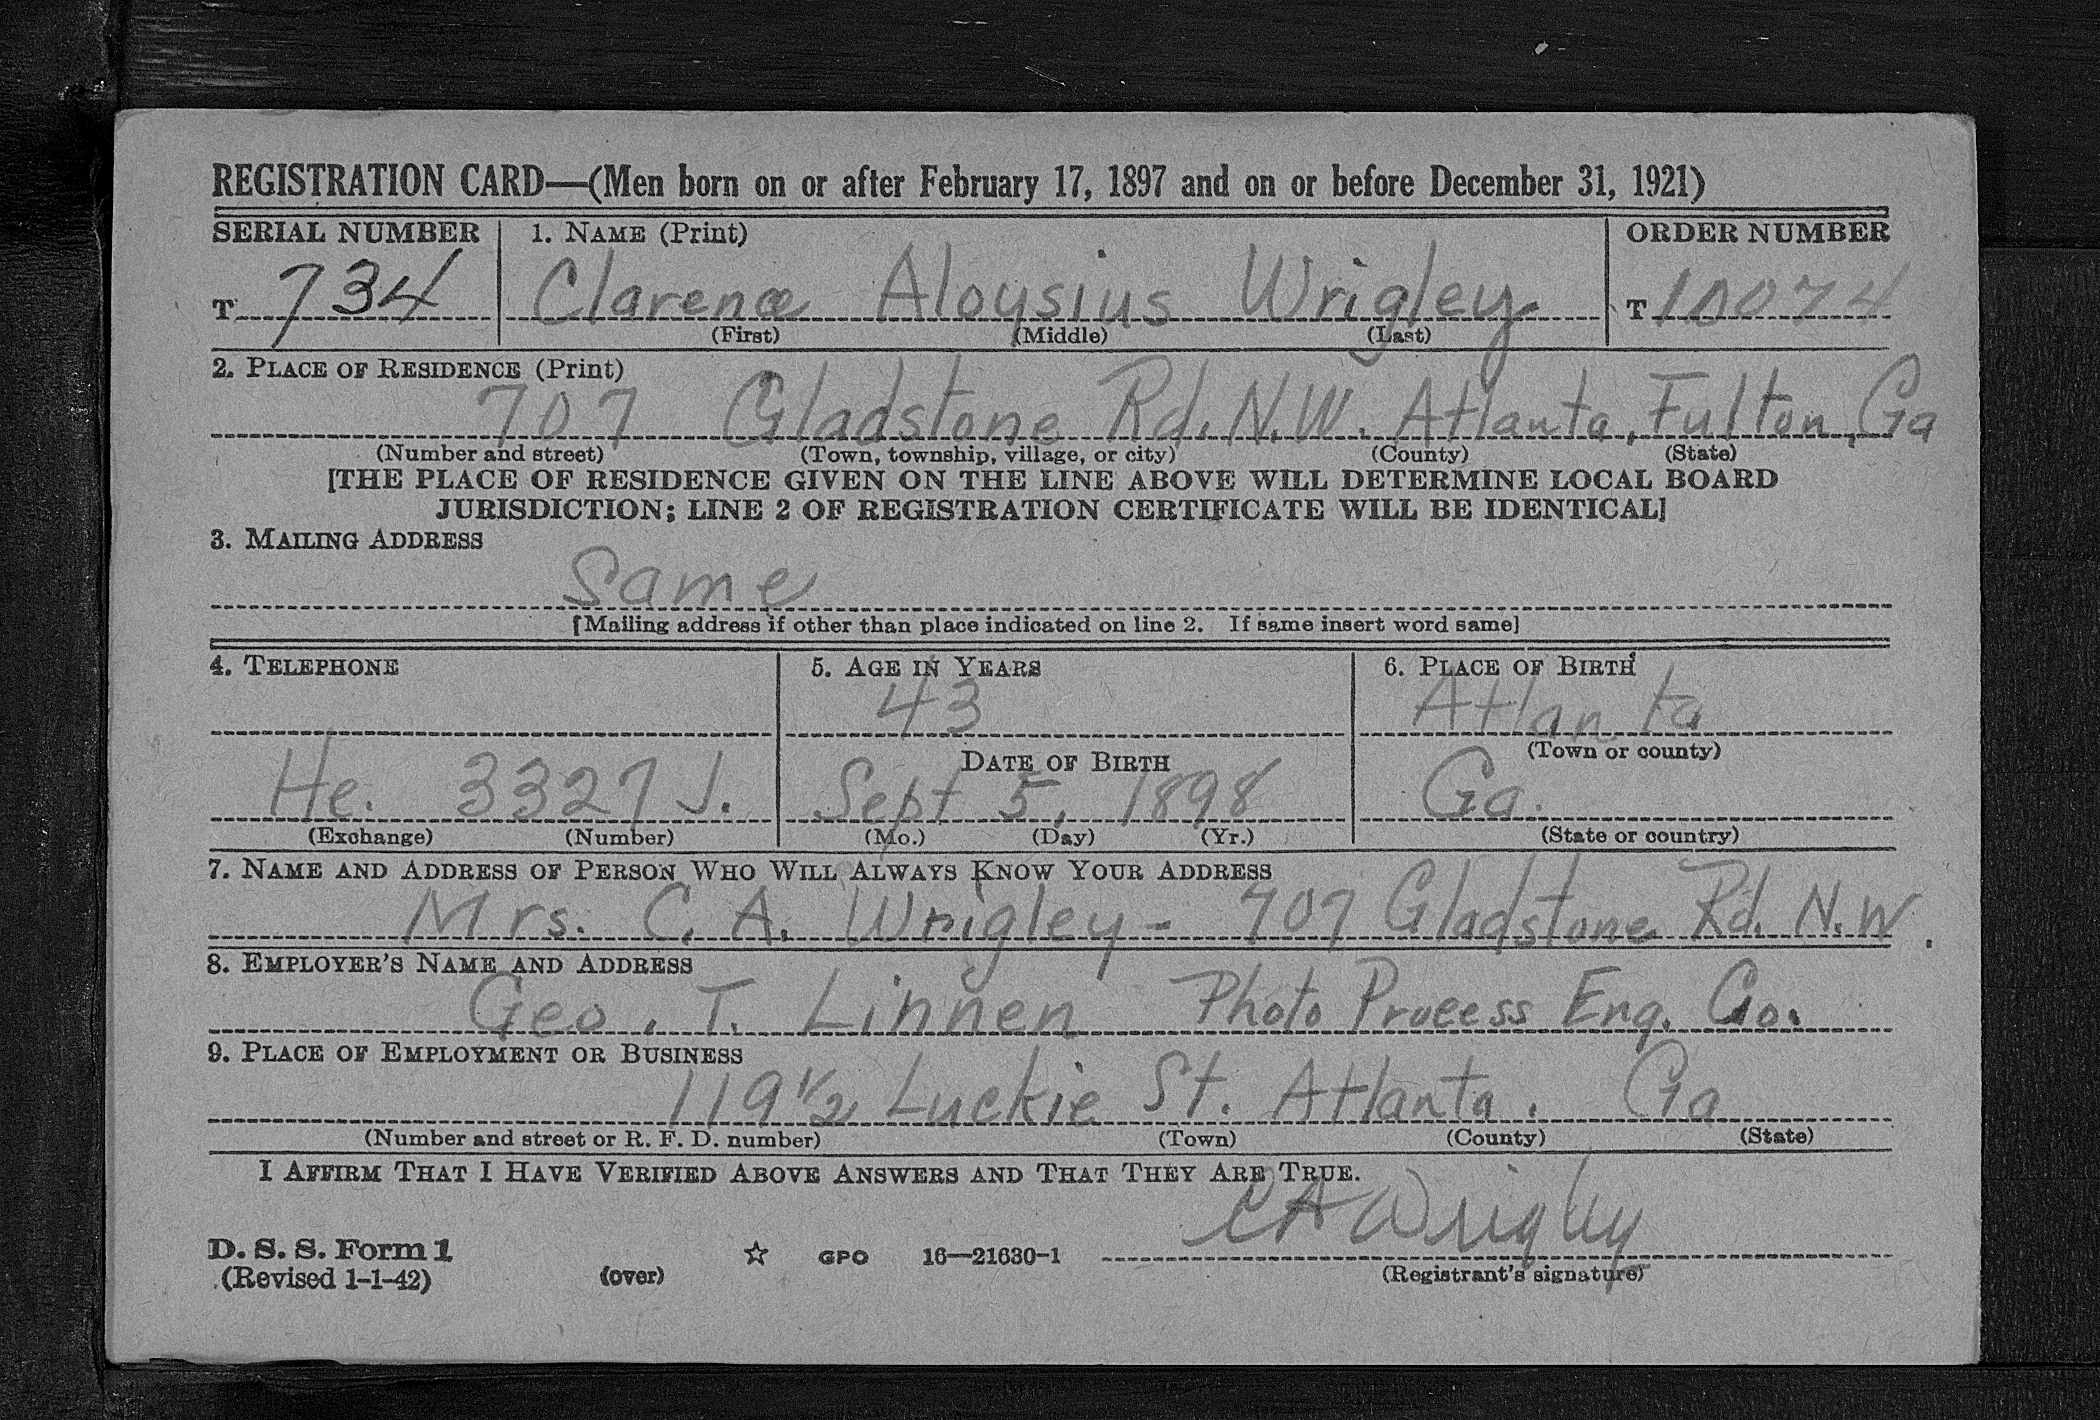 REGISTRATION CARD—(Men born on or after February 17, 1897 and on or before December 31, 1921)
SERIAL NUMBER 1. NAME (Print) ORDER NUMBER
T 734 Clarence Aloysius Wrigley T 10074
(First) (Middle) (Last)
2. PLACE OF RESIDENCE (Print)
707 Gladstone Rd. N.W. Atlanta, Fulton, Ga
(Number and street) (Town, township, village, or city) (County) (State)
[THE PLACE OF RESIDENCE GIVEN ON THE LINE ABOVE WILL DETERMINE LOCAL BOARD
JURISDICTION; LINE 2 OF REGISTRATION CERTIFICATE WILL BE IDENTICAL]
3. MAILING ADDRESS
Same
[Mailing address if other than place indicated on line 2. If same insert word same]
4. TELEPHONE 5. AGE IN YEARS 6. PLACE OF BIRTH
43 Atlanta
DATE OF BIRTH (Town or county)
He. 3327 J. Sept 5, 1898 Ga.
(Exchange) (Number) (Mo.) (Day) (Yr.) (State or country)
7. NAME AND ADDRESS OF PERSON WHO WILL ALWAYS KNOW YOUR ADDRESS
Mrs. C. A. Wrigley - 707 Gladstone Rd. N.W.
8. EMPLOYER'S NAME AND ADDRESS
Geo. T. Linnen Photo Process Eng. Co.
9. PLACE OF EMPLOYMENT OR BUSINESS
119 1/2 Luckie St. Atlanta. Ga
(Number and street or R. F. D. number) (Town) (County) (State)
I AFFIRM THAT I HAVE VERIFIED ABOVE ANSWERS AND THAT THEY ARE TRUE.
C A Wrigley
D. S. S. Form 1 ☆ GPO 16—21630-1
(Revised 1-1-42) (over) (Registrant's signature)